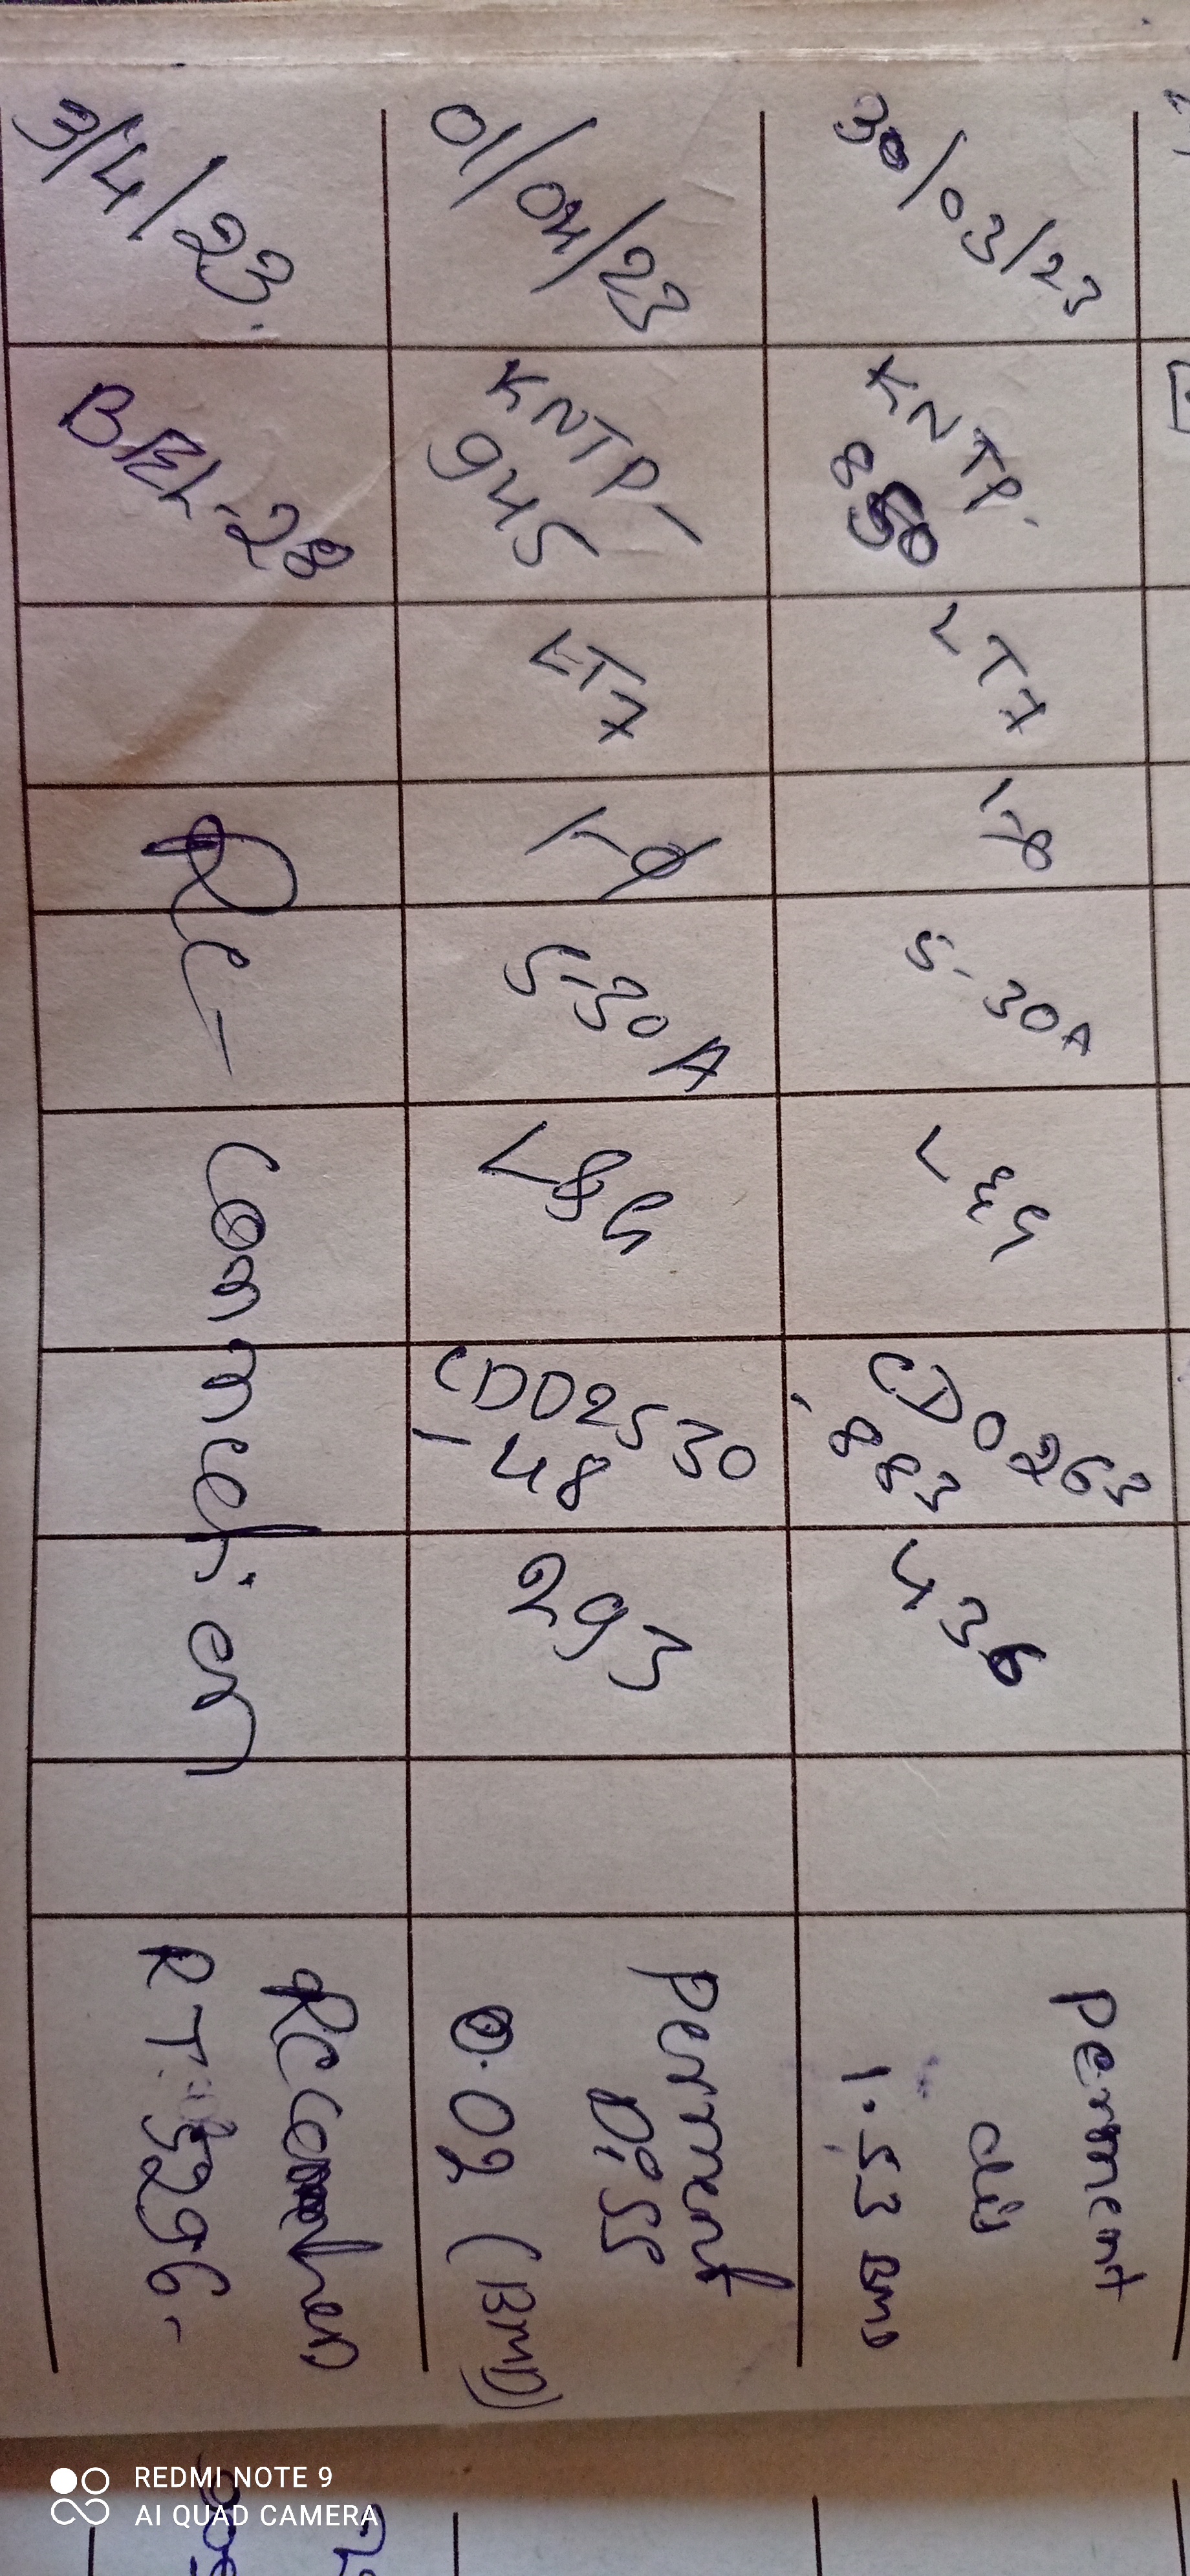 30/03/23
KNTP.
850
LTX
1-φ
5-30A
L&4
CD0263
-883
436
perment
dis
1.53 Bmd
01/04/23
KNTP-
945
LTX
1-φ
5-30A
L&4
CD02530
-48
293
Perment
Diss
0.02 (BMD)
3/4/23.
BEL-28
Re-
connection
Reconnection
RT-5296-
REDMI NOTE 9
AI QUAD CAMERA